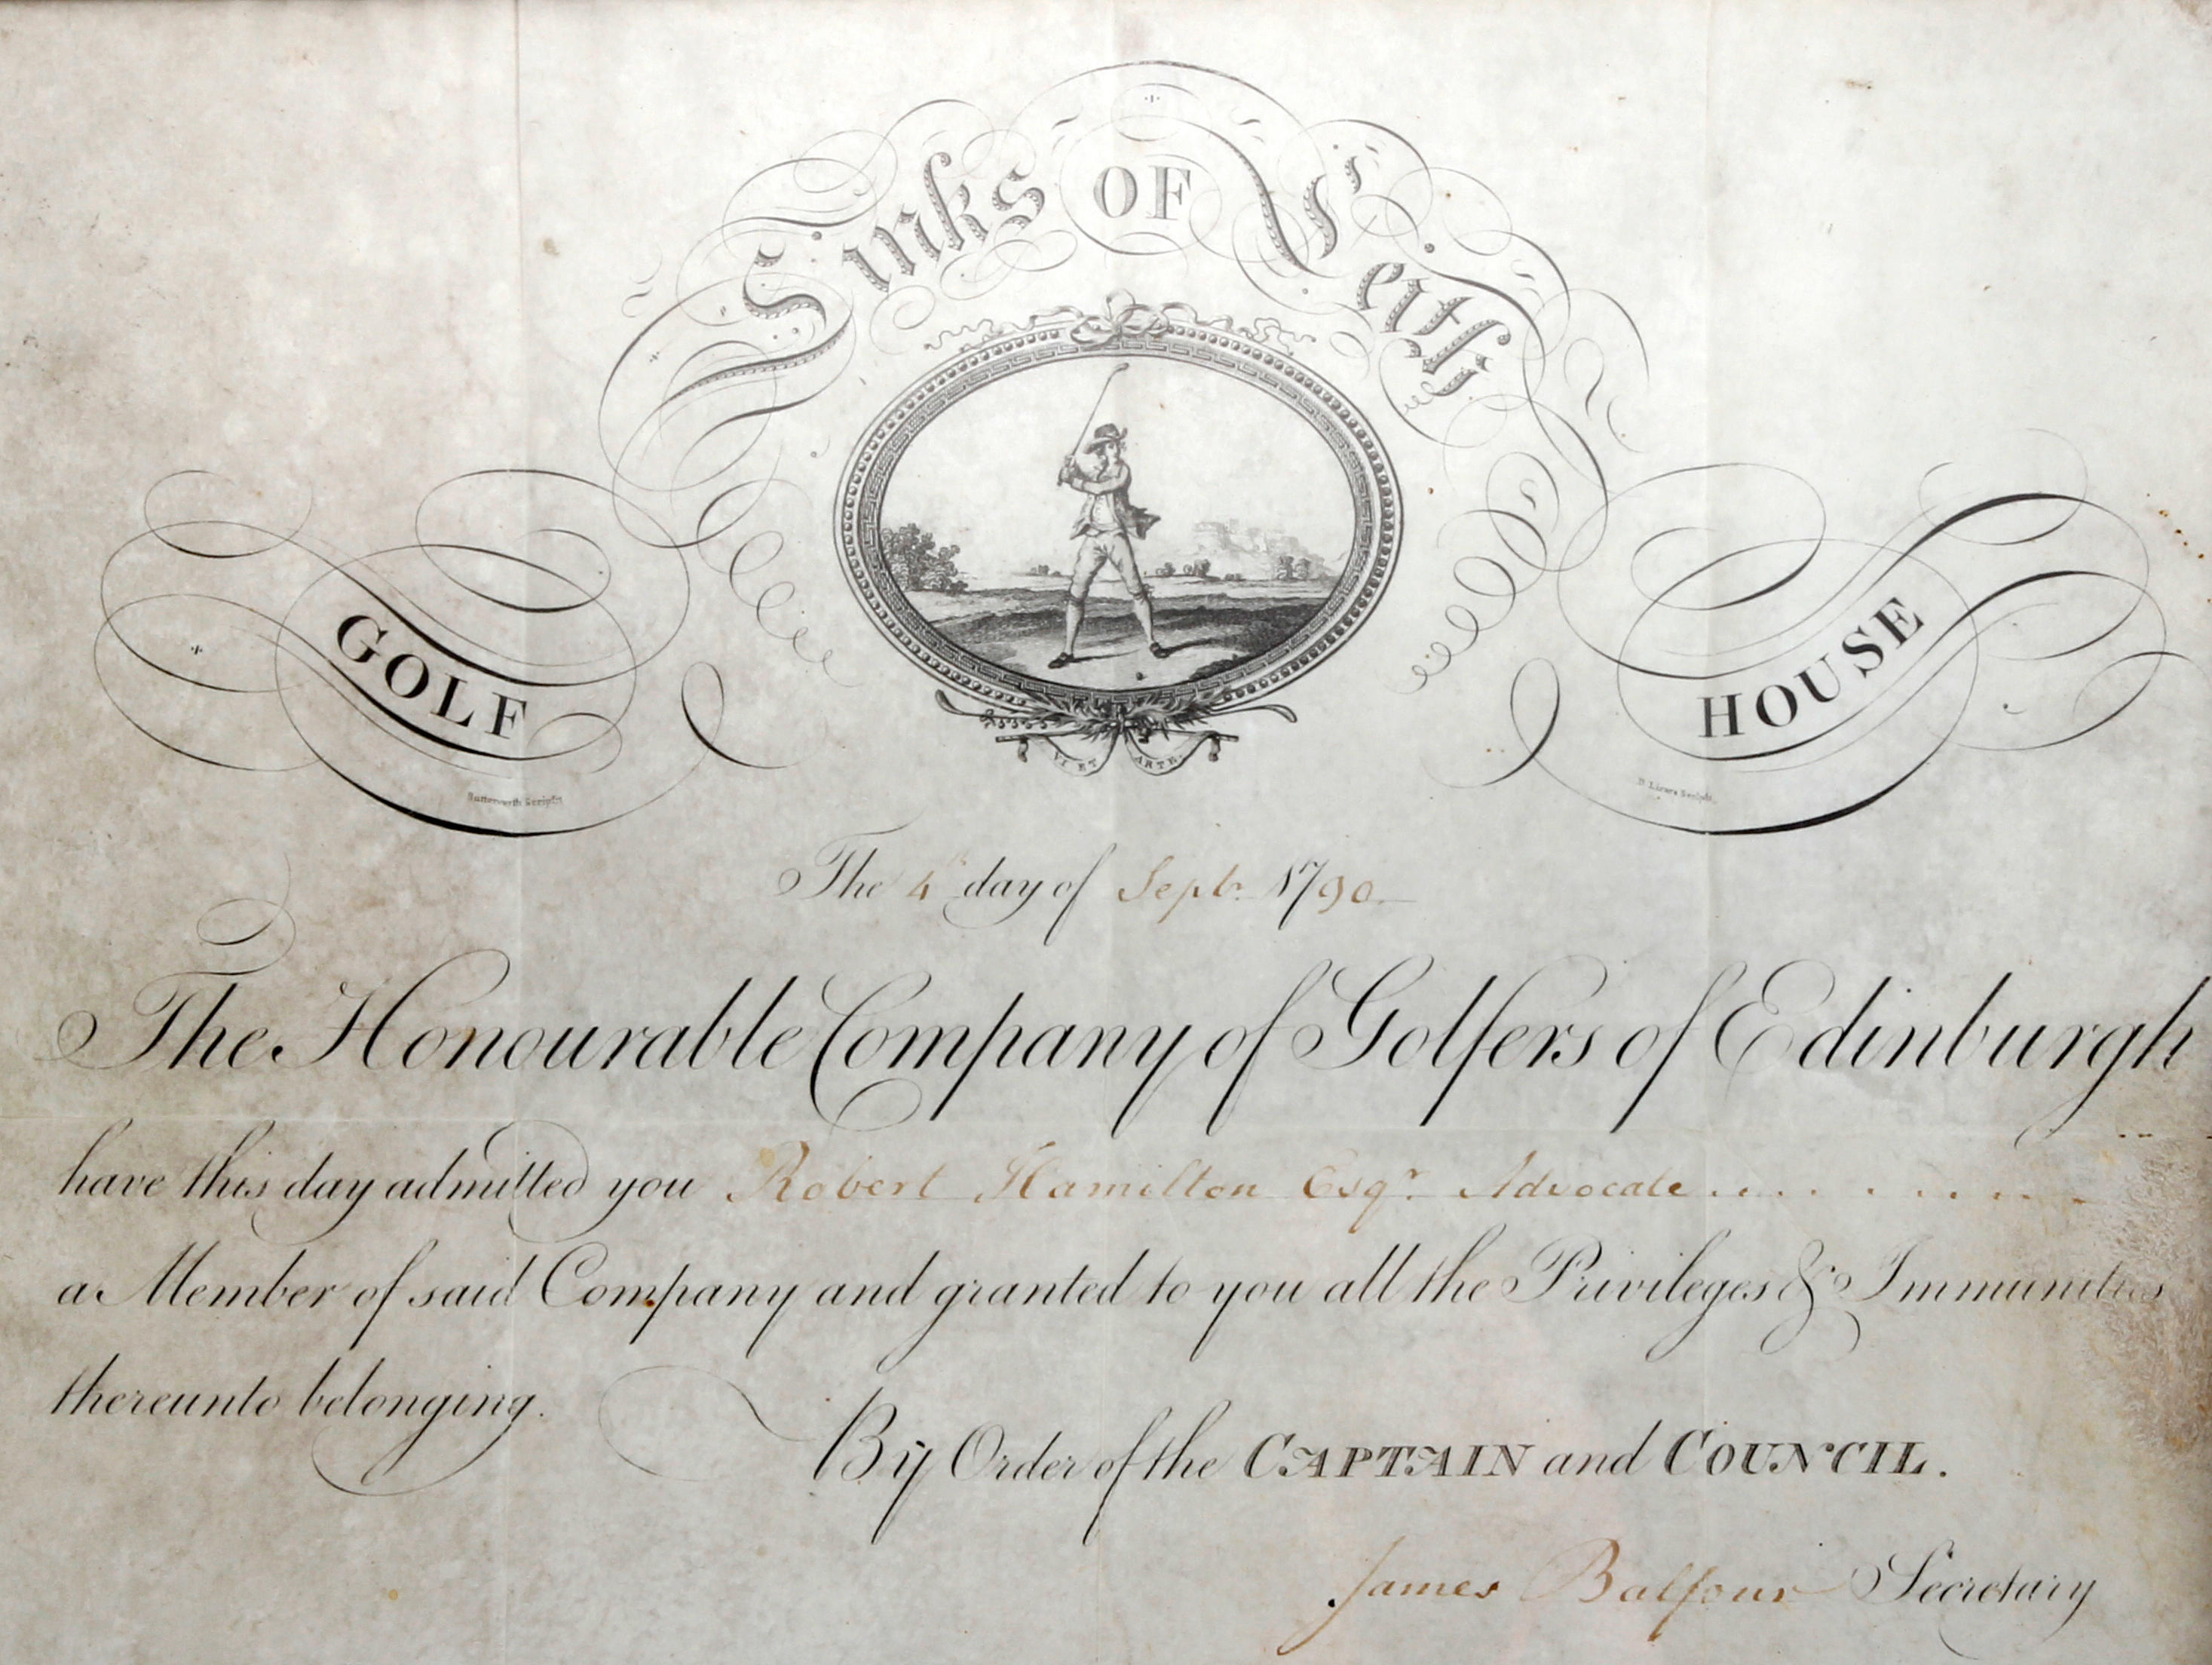 Links OF Leith
GOLF HOUSE
VI ET ARTE.
Butterworth Sculpsit
D. Lizars Sculpsit.
The 4th day of Septr. 1790.
The Honourable Company of Golfers of Edinburgh
have this day admitted you Robert Hamilton Esqr. Advocate
a Member of said Company and granted to you all the Privileges & Immunities
thereunto belonging.
By Order of the CAPTAIN and COUNCIL.
James Balfour Secretary